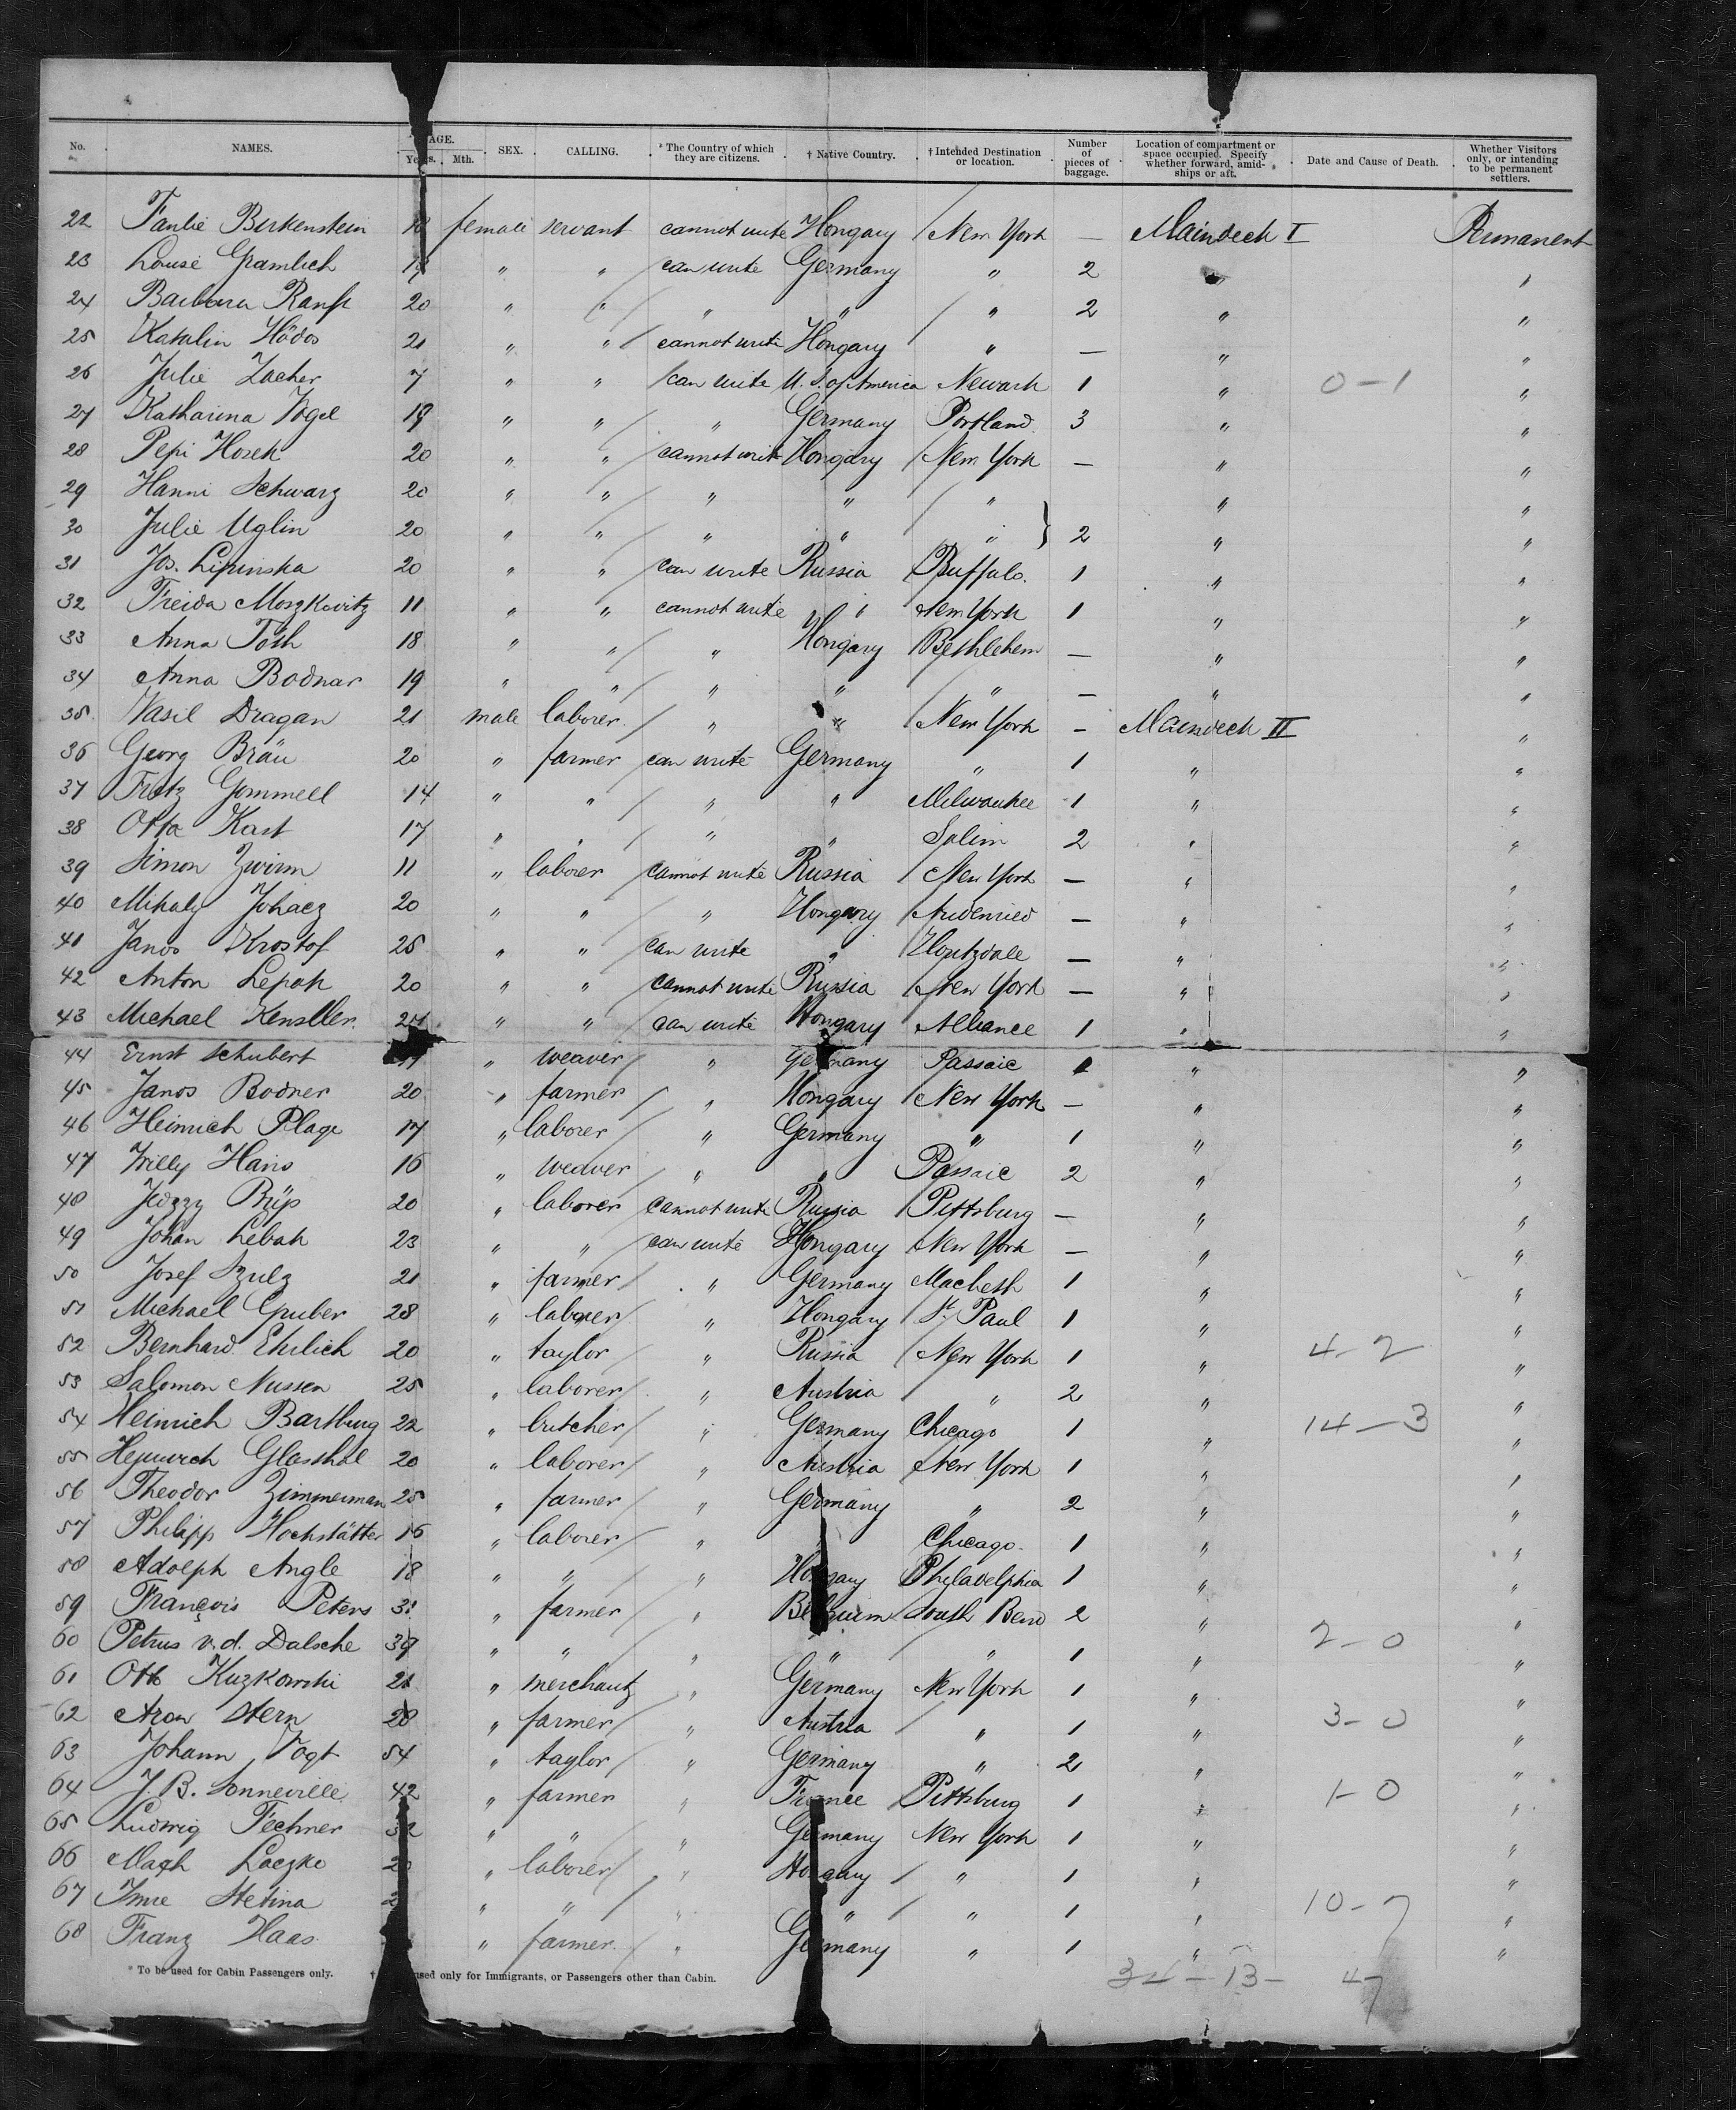 No. NAMES. AGE. Years. Mth. SEX. CALLING. * The Country of which they are citizens. † Native Country. † Intehded Destination or location. Number of pieces of baggage. Location of compartment or space occupied. Specify whether forward, amid-ships or aft. Date and Cause of Death. Whether Visitors only, or intending to be permanent settlers.
22 Fanlie Berkenstein 18 female servant cannot write Hongary New York — Maindeck I Permanent
23 Louise Gramlich " " can write Germany " 2 " "
24 Barbara Ranft 20 " " " " " 2 " "
25 Katalin Hódos 21 " " cannot write Hongary " — " "
26 Julie Zacher 7 " " can write U. S. of America Newark 1 " 0-1 "
27 Katharina Vogel 19 " " " Germany Portland 3 " "
28 Pepi Hosek 20 " " cannot write Hongary New York — " "
29 Hanni Schwarz 20 " " " " " " "
30 Julie Uglin 20 " " " " " } 2 " "
31 Jos. Lipinska 20 " " can write Russia Buffalo. 1 " "
32 Freida Moszkovitz 11 " " cannot write " New York 1 " "
33 Anna Toth 18 " " " Hongary Bethlehem — " "
34 Anna Bodnar 19 " " " " " — " "
35 Wasil Dragan 21 male laborer " " New York — Maindeck II "
36 Georg Bräu 20 " farmer can write Germany " 1 " "
37 Fritz Gommell 14 " " " " Milwaukee 1 " "
38 Otto Kast 17 " " " " Salim 2 " "
39 Simon Zwirn 11 " laborer cannot write Russia New York — " "
40 Mihaly Johacz 20 " " " Hongary Audenried — " "
41 Janos Krostof 25 " " can write " Houtzdale — " "
42 Anton Lepak 20 " " cannot write Russia New York — " "
43 Michael Kenstler 24 " " can write Hongary Alliance 1 " "
44 Ernst Schubert " weaver " Germany Passaic 1 " "
45 Janos Bodner 20 " farmer " Hongary New York — " "
46 Heinrich Plage 17 " laborer " Germany " 1 " "
47 Willy Hans 16 " weaver " " Passaic 2 " "
48 20 " laborer cannot write Russia Pittsburg — " "
49 Johan Lebak 23 " " can write Hongary New York — " "
50 Josef Szulz 21 " farmer " Germany Macbeth 1 " "
51 Michael Gruber 28 " laborer " Hongary St. Paul 1 " "
52 Bernhard Ehrlich 20 " taylor " Russia New York 1 " 4-2 "
53 Salomon Nussen 25 " laborer " Austria " 2 " "
54 Heinrich Bartburg 22 " butcher " Germany Chicago 1 " 14-3 "
55 Heinrich Glasthal 20 " laborer " Austria New York 1 " "
56 Theodor Zimmerman 25 " farmer " Germany " 2 " "
57 Philipp Hochstätter 16 " laborer " Chicago. 1 " "
58 Adolph Angle 18 " " " Hongary Philadelphia 1 " "
59 François Peters " farmer " Belgium South Bend 2 " "
60 Petrus v. d. Dalsche 39 " " " " 1 " 2-0 "
61 Otto Kuzkowski 21 " merchant " Germany New York 1 " "
62 Aron Stern 28 " farmer " Austria " 1 " 3-0 "
63 Johann Vogt 54 " taylor " Germany " 2 " "
64 J. B. Sonneville 42 " farmer " France Pittsburg 1 " 1-0 "
65 Ludwig Fechner 32 " " " Germany New York 1 " "
66 Laczko " laborer " Hongary " 1 " "
67 Imre Stetina " " " " " 1 " 10-7 "
68 Franz Haas " farmer " Germany " 1 " "
* To be used for Cabin Passengers only. † used only for Immigrants, or Passengers other than Cabin. 34-13- 47